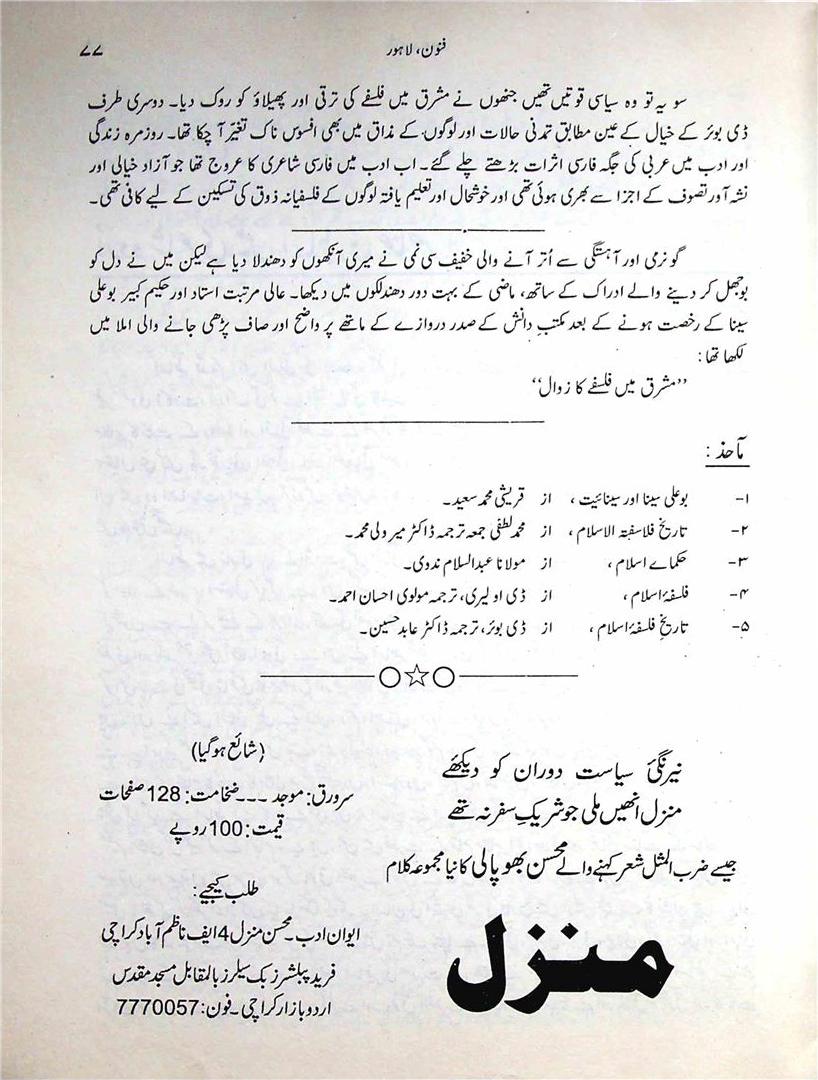 فنون، لاہور
۷۷
سو یہ تو وہ سیاسی قوتیں تھیں جنھوں نے مشرق میں فلسفے کی ترقی اور پھیلاؤ کو روک دیا۔ دوسری طرف
ڈی بوئر کے خیال کے عین مطابق تمدنی حالات اور لوگوں کے مذاق میں بھی افسوس ناک تغیّر آ چکا تھا۔ روزمرہ زندگی
اور ادب میں عربی کی جگہ فارسی اثرات بڑھتے چلے گئے۔ اب ادب میں فارسی شاعری کا عروج تھا جو آزاد خیالی اور
نشہ آور تصوف کے اجزا سے بھری ہوئی تھی اور خوشحال اور تعلیم یافتہ لوگوں کے فلسفیانہ ذوق کی تسکین کے لیے کافی تھی۔
گو نرمی اور آہستگی سے اُتر آنے والی خفیف سی نمی نے میری آنکھوں کو دھندلا دیا ہے لیکن میں نے دل کو
بوجھل کر دینے والے ادراک کے ساتھ، ماضی کے بہت دور دھندلکوں میں دیکھا۔ عالی مرتبت استاد اور حکیم کبیر بوعلی
سینا کے رخصت ہونے کے بعد مکتبِ دانش کے صدر دروازے کے ماتھے پر واضح اور صاف پڑھی جانے والی املا میں
لکھا تھا:
”مشرق میں فلسفے کا زوال“
مآخذ:
۱- بوعلی سینا اور سینائیت، از قریشی محمد سعید۔
۲- تاریخ فلاسفتہ الاسلام، از محمد لطفی جمعہ ترجمہ ڈاکٹر میر ولی محمد۔
۳- حکماے اسلام، از مولانا عبدالسلام ندوی۔
۴- فلسفۂ اسلام، از ڈی اولیری، ترجمہ مولوی احسان احمد۔
۵- تاریخِ فلسفۂ اسلام، از ڈی بوئر، ترجمہ ڈاکٹر عابد حسین۔
نیرنگیٔ سیاست دوران کو دیکھئے
منزل انھیں ملی جو شریکِ سفر نہ تھے
جیسے ضرب المثل شعر کہنے والے محسن بھوپالی کا نیا مجموعہ کلام
منزل
(شائع ہوگیا)
سرورق: موجد ۔۔۔ ضخامت: 128 صفحات
قیمت: 100 روپے
طلب کیجیے:
ایوان ادب۔ محسن منزل 4 ایف ناظم آباد کراچی
فرید پبلشرز بک سیلرز بالمقابل مسجد مقدس
اردو بازار کراچی۔ فون: 7770057